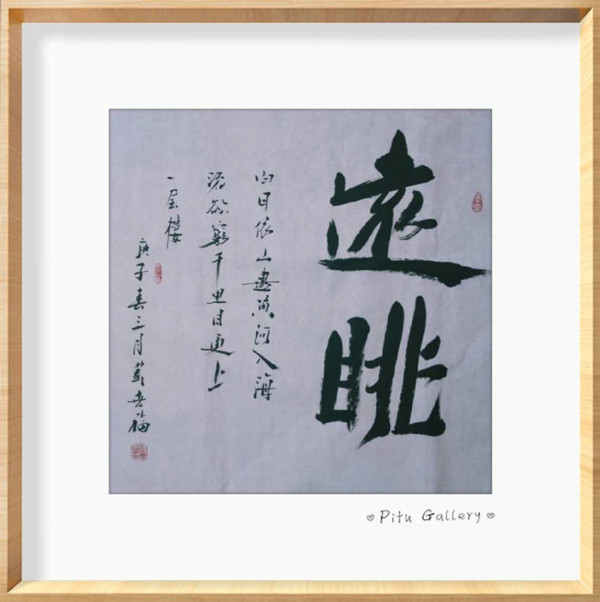 遠眺
白日依山盡黄河入海
流欲窮千里目更上
一层樓
庚子春三月
Pitu Gallery